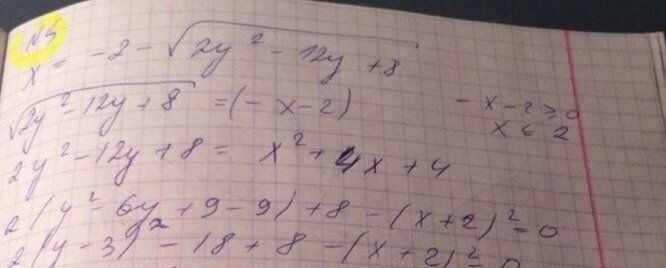 N5
x = -2 - √(2y² - 12y + 8)
√(2y² - 12y + 8) = (-x-2)   -x-2 ≥ 0
x ≤ 2
2y² - 12y + 8 = x² + 4x + 4
2(y² - 6y + 9 - 9) + 8 - (x+2)² = 0
2(y - 3)² - 18 + 8 - (x+2)² = 0